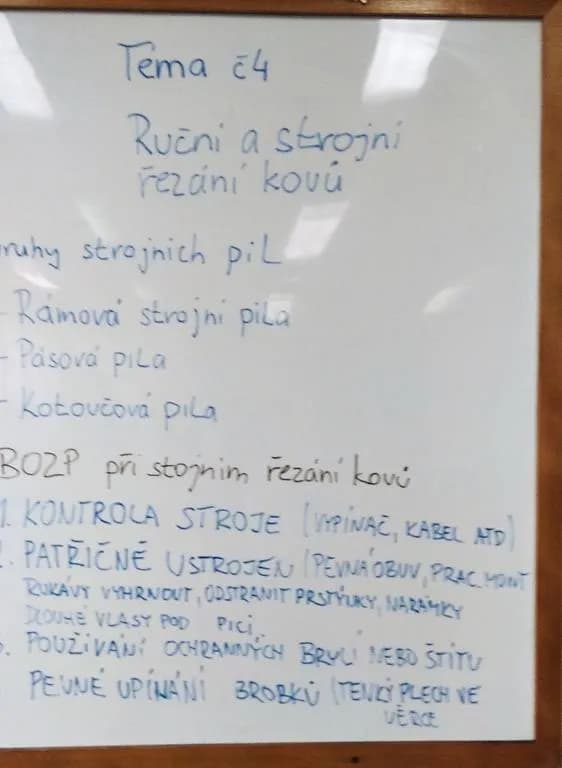 Téma č4
Ruční a strojní
řezání kovů
ruhy strojních pil
- Rámová strojní pila
- Pásová pila
- Kotoučová pila
BOZP při stojním řezání kovů
1. KONTROLA STROJE (VYPÍNAČ, KABEL ATD)
. PATŘIČNÉ USTROJENÍ (PEVNÁ OBUV, PRAC. MONT
RUKÁVY VYHRNOUT, ODSTRANIT PRSTÝNKY, NÁRAMKY
DLOUHÉ VLASY POD ČEPICÍ
. POUŽÍVÁNÍ OCHRANNÝCH BRÝLÍ NEBO ŠTÍTU
PEVNÉ UPÍNÁNÍ OBROBKŮ (TENKÝ PLECH VE
VĚRCE